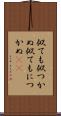 似ても似つか
ぬ似てもにつ
かぬ《《